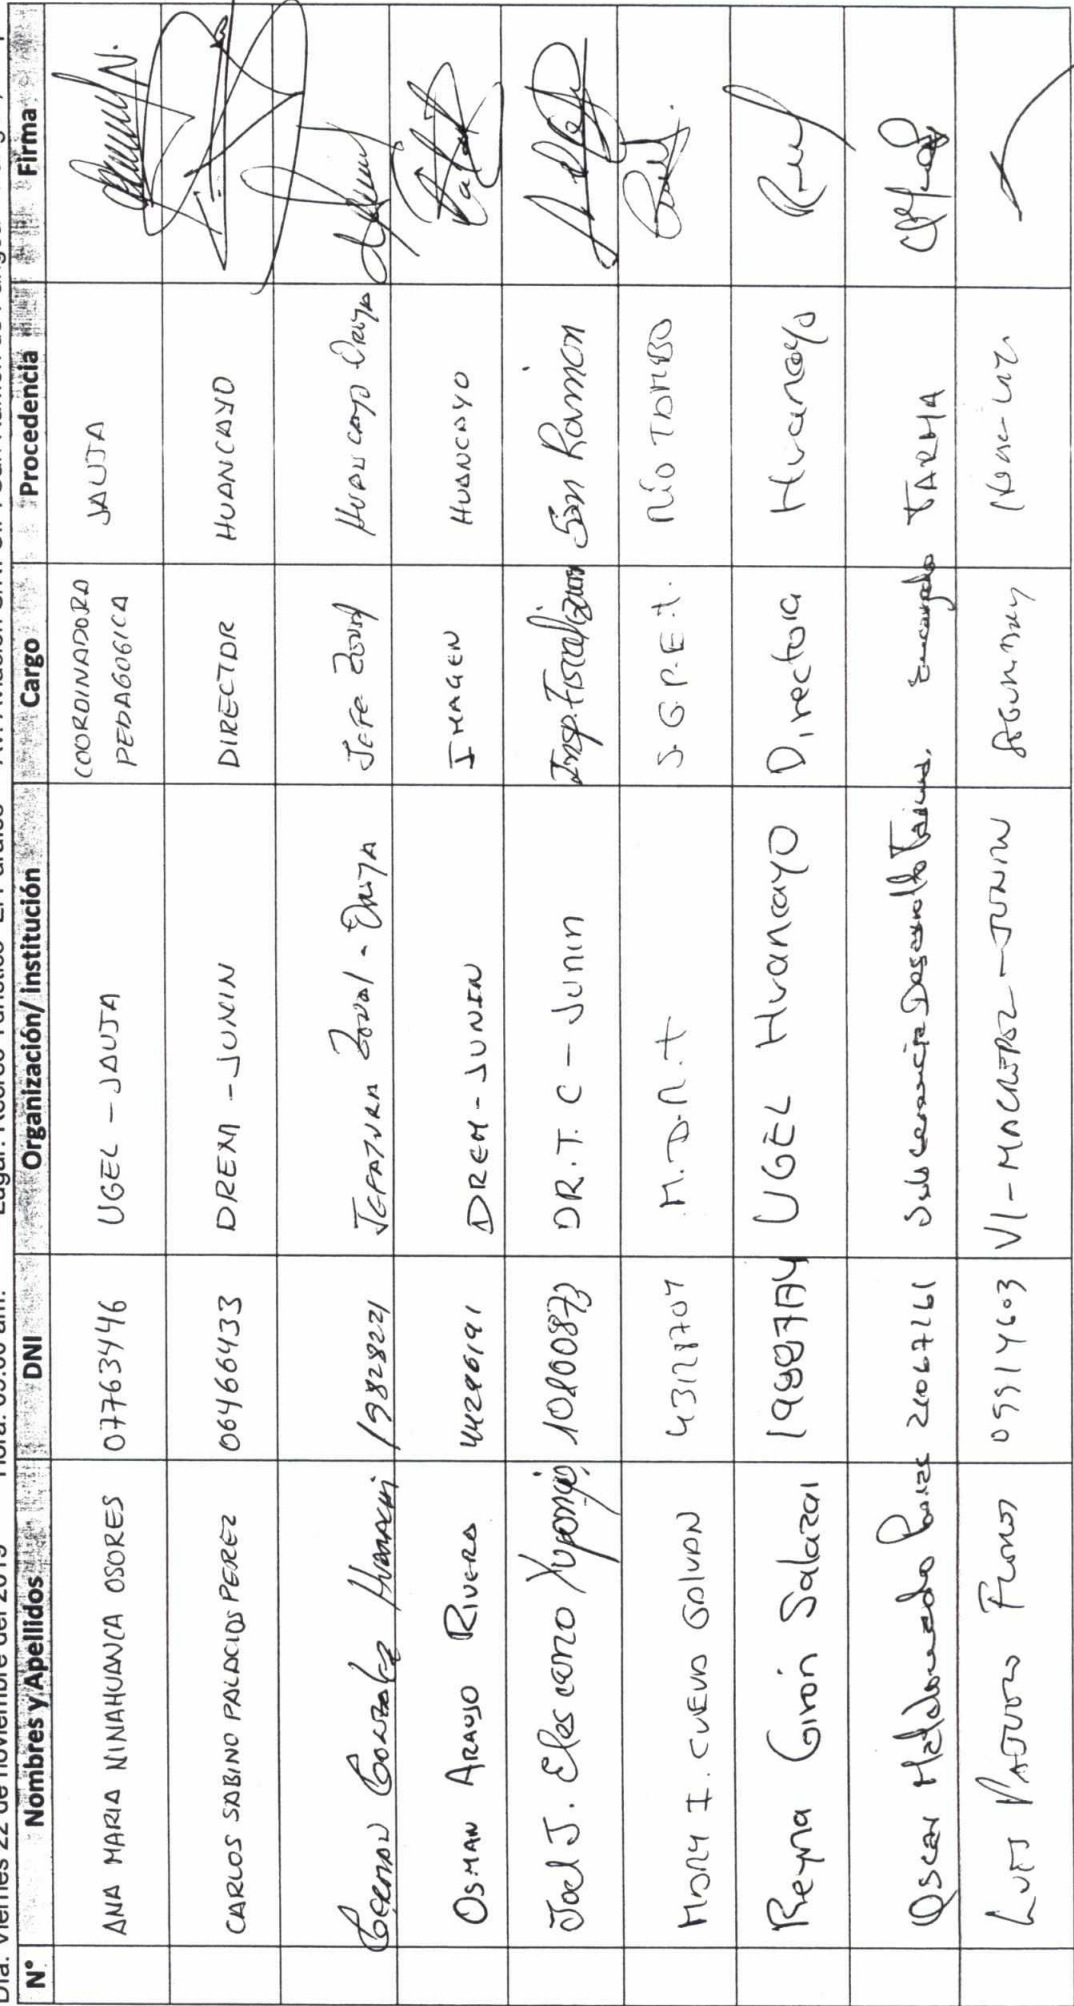 Día: Viernes 22 de noviembre del 2019 Hora: 09:00 am. Lugar: Recreo Turístico
N° Nombres y Apellidos DNI Organización/ institución Cargo Procedencia Firma
ANA MARIA NINAHUANCA OSORES 07763446 UGEL - JAUJA COORDINADORA PEDAGOGICA JAUJA
CARLOS SABINO PALACIOS PEREZ 06466433 DREM - JUNIN DIRECTOR HUANCAYO
German Gonzalez Huamachi 19828221 JEFATURA Zonal - Oroya Jefe Zonal Huancayo Oroya
OSMAN ARAUJO RIVERA 44296191 DREM - JUNIN IMAGEN HUANCAYO
Joel J. Elescano Yupanqui 10800873 DR.T.C - Junin Insp. Fiscalizacion San Ramon
MARY I. CUEVA GALVAN 43128704 M.D.R.T S.G.P.E.T. RÍO TAMBO
Reyna Girón Salazar UGEL Huancayo Directora Huancayo
Oscar Maldonado 21067261 Sub Gerencia Desarrollo encargado TARMA
09914603 VI - MACREPOL - JUNIN